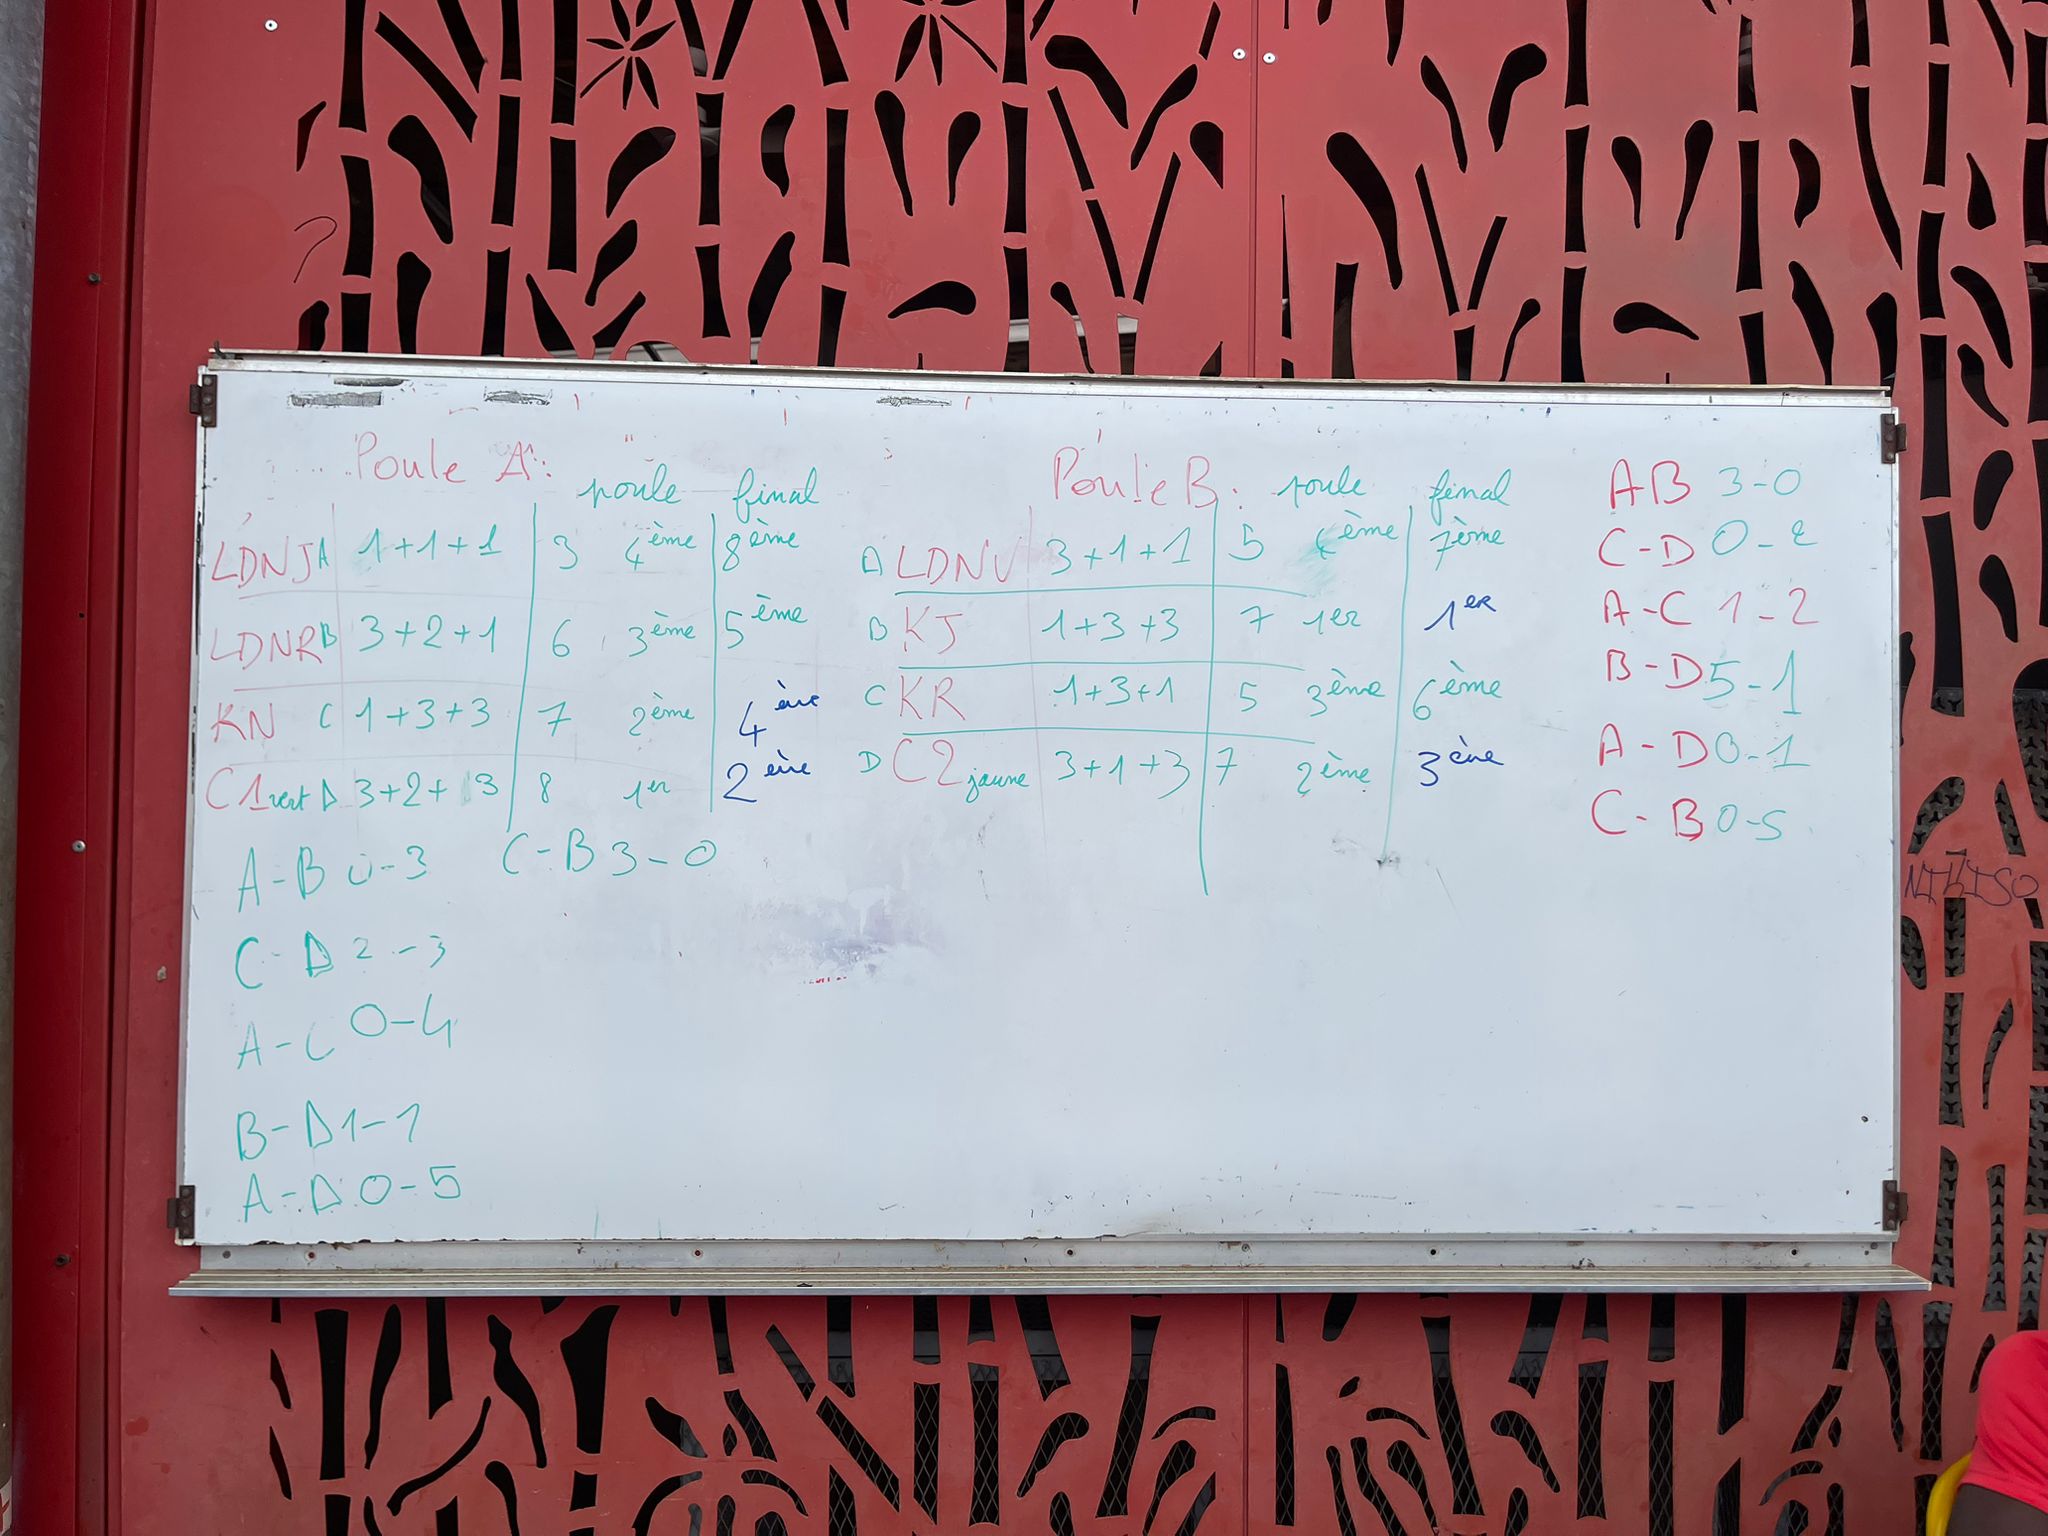 Poule A:
poule final
LDNJ A 1+1+1 3 4ème 8ème
LDNR B 3+2+1 6 3ème 5ème
KN C 1+3+3 7 2ème 4ème
C1 vert D 3+2+3 8 1er 2ème
A-B 0-3 C-B 3-0
C-D 2-3
A-C 0-4
B-D 1-1
A-D 0-5
Poule B:
poule final
A LDNV 3+1+1 5 4ème 7ème
B KJ 1+3+3 7 1er 1er
C KR 1+3+1 5 3ème 6ème
D C2 jaune 3+1+3 7 2ème 3ème
AB 3-0
C-D 0-2
A-C 1-2
B-D 5-1
A-D 0-1
C-B 0-5